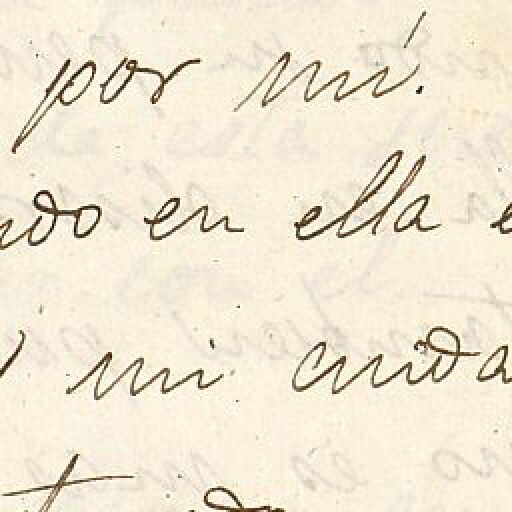 por mí.
ndo en ella e
mi cuida